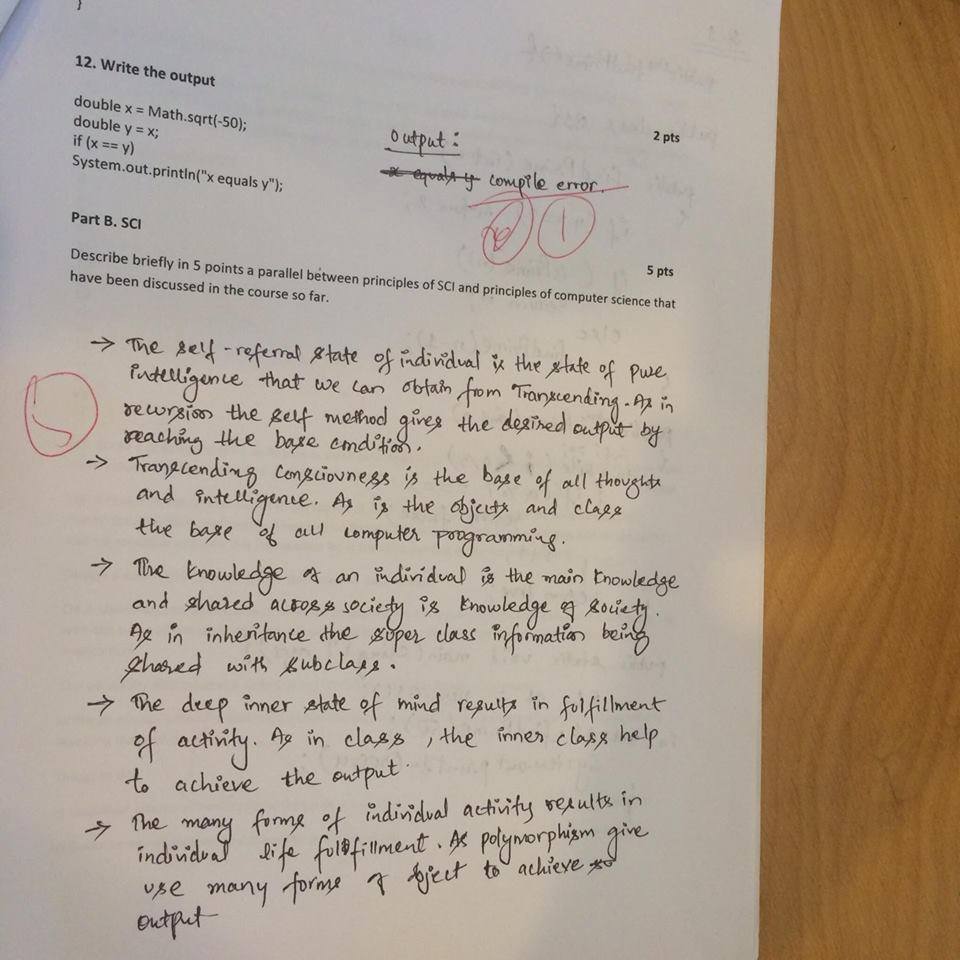 }
12. Write the output
double x = Math.sqrt(-50);
double y = x;
if (x == y)
System.out.println("x equals y");
2 pts
Output :
x equals y compile error.
1
Part B. SCI
5 pts
Describe briefly in 5 points a parallel between principles of SCI and principles of computer science that
have been discussed in the course so far.
5
→ The self-referral state of individual is the state of pure
intelligence that we can obtain from Transcending. As in
recursion the self method gives the desired output by
reaching the base condition.
→ Transcending Consciovness is the base of all thoughts
and intelligence. As is the objects and class
the base of all computer programming.
→ The knowledge of an individual is the main knowledge
and shared across society is knowledge of society.
As in inheritance the super class information being
shared with subclass.
→ The deep inner state of mind results in fulfillment
of activity. As in class , the inner class help
to achieve the output.
→ The many forms of individual activity results in
individual life fulfillment. As polymorphism give
use many forms of object to achieve so
output